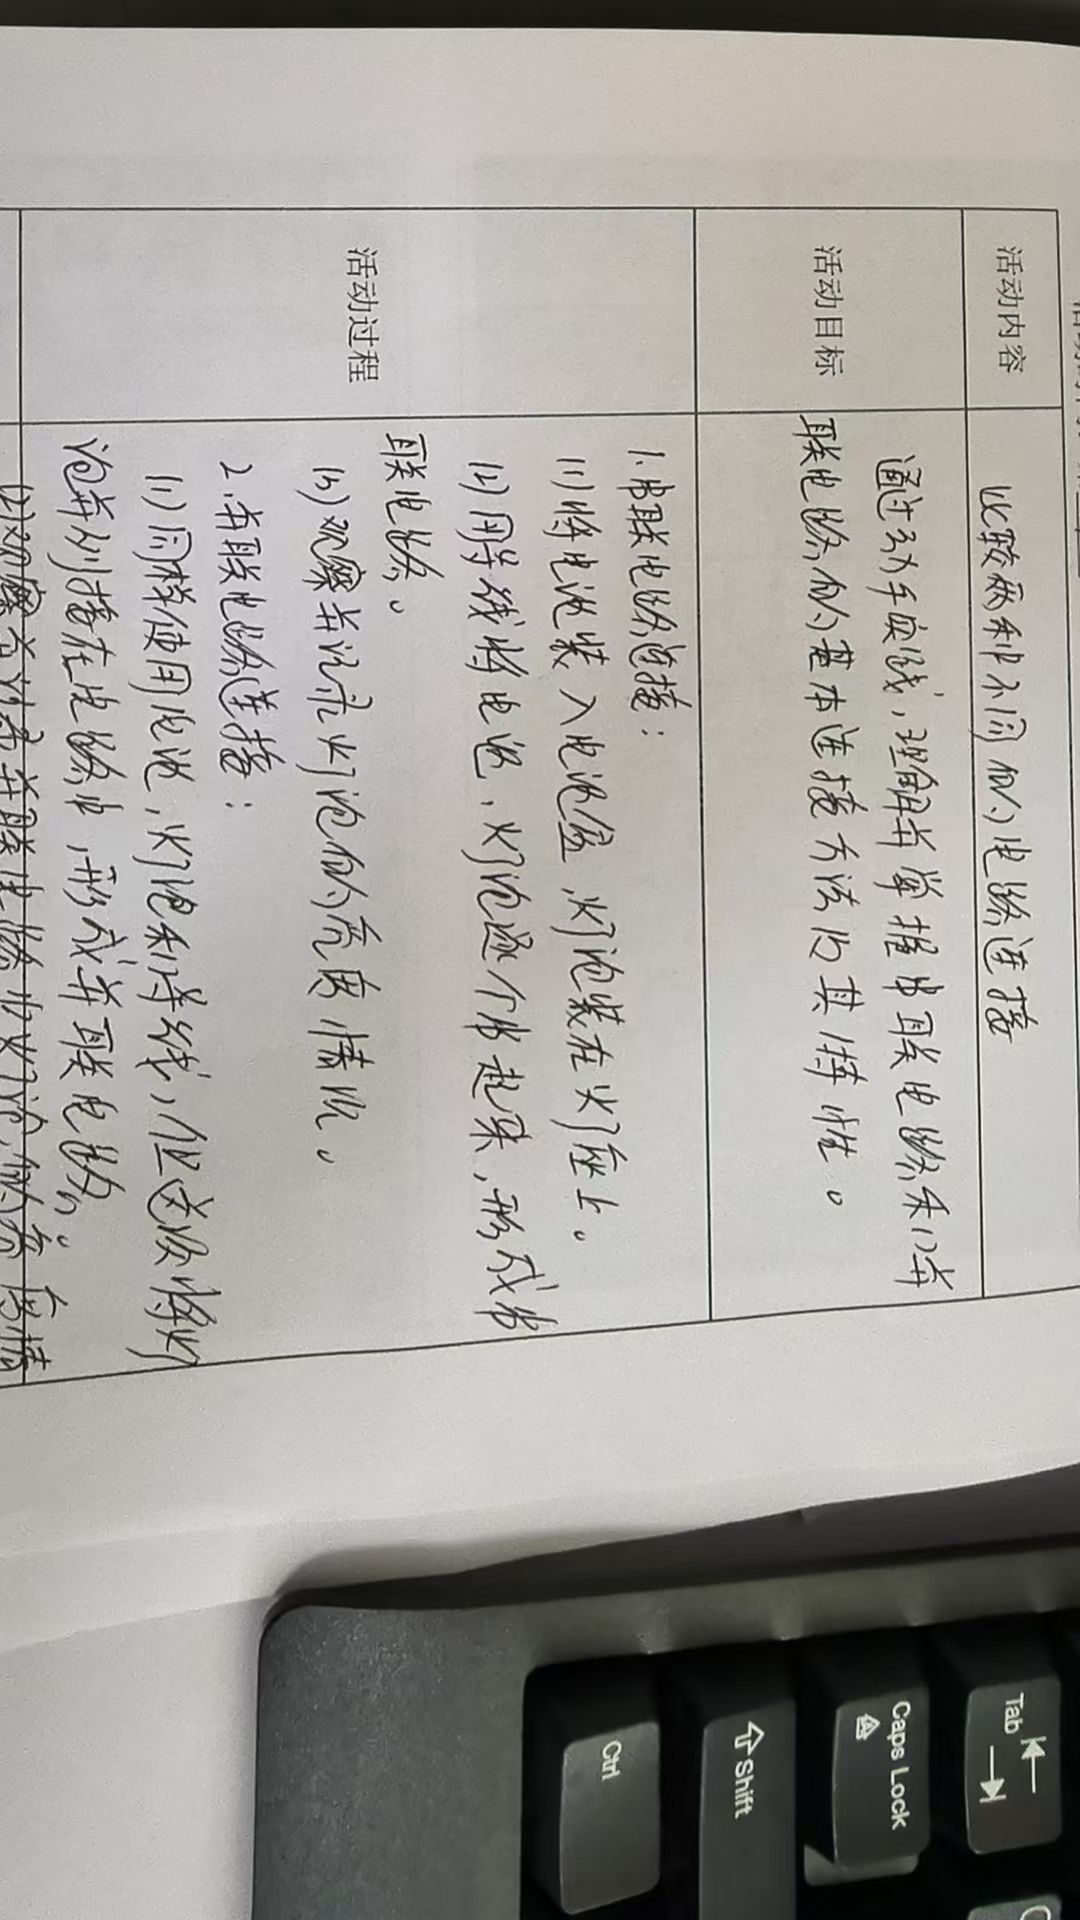 活动内容
比较两种不同的电路连接
活动目标
通过动手实践,理解并掌握串联电路和并
联电路的基本连接方法的其特性。
活动过程
1.串联电路连接:
(1)将电池装入电池盒,灯泡装在灯座上。
(2)用导线将电池、灯泡逐个串起来,形成串
联电路。
(3)观察并记录灯泡的亮度情况。
2.并联电路连接:
(1)同样使用电池,灯泡和导线,但这次将灯
泡并列接在电路中,形成并联电路。
(2)观察并记录并联电路中灯泡的亮度情
Tab
Caps Lock
Shift
Ctrl